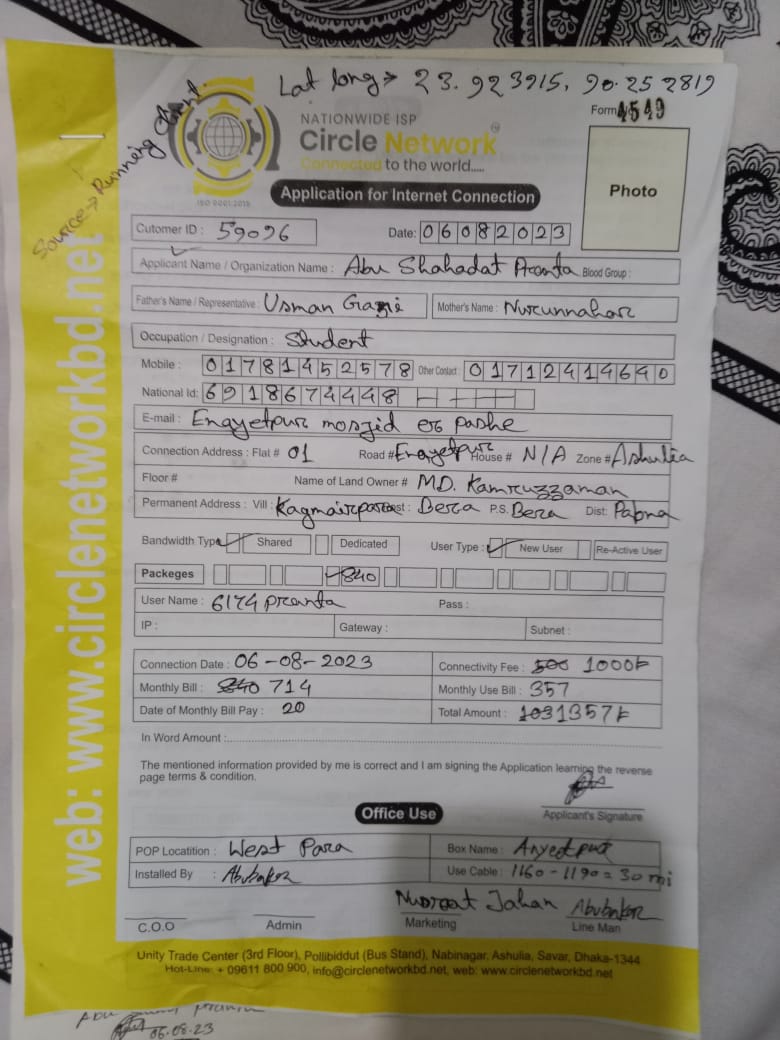 Lat long → 23.923915, 90.252819
Source → Running Client
Form 4549
NATIONWIDE ISP
Circle Network
Connected to the world.....
ISO 9001:2015
Application for Internet Connection
Photo
Cutomer ID : 59096
Date: 06082023
Applicant Name / Organization Name : Abu Shahadat Pranta Blood Group :
Father's Name / Representative : Usman Gazi Mother's Name : Nurunnahar
Occupation / Designation : Student
Mobile : 01781452578 Other Contact : 01712414690
National Id: 6918674448
E-mail : Enayetpur mosjid er pashe
Connection Address : Flat # 01 Road # Enayetpur House # N/A Zone # Ashulia
Floor # Name of Land Owner # MD. Kamruzzaman
Permanent Address : Vill : Kagmairpara Post : Bera P.S. Bera Dist: Pabna
Bandwidth Type Shared Dedicated User Type : New User Re-Active User
Packeges 840
User Name : 6174pranta Pass :
IP : Gateway : Subnet :
Connection Date : 06-08-2023 Connectivity Fee : 500 1000৳
Monthly Bill : 840 714 Monthly Use Bill : 357
Date of Monthly Bill Pay : 20 Total Amount : 1031357৳
In Word Amount :
The mentioned information provided by me is correct and I am signing the Application learning the reverse
page terms & condition.
Applicant's Signature
Office Use
POP Locatition : West Para Box Name : Anyedpur
Installed By : Abubakor Use Cable : 1160 - 1190 = 30 mi
Nusrat Jahan Abubakor
C.O.O Admin Marketing Line Man
Unity Trade Center (3rd Floor), Pollibiddut (Bus Stand), Nabinagar, Ashulia, Savar, Dhaka-1344
Hot-Line: + 09611 800 900, info@circlenetworkbd.net, web: www.circlenetworkbd.net
web: www.circlenetworkbd.net
Abu
06.08.23